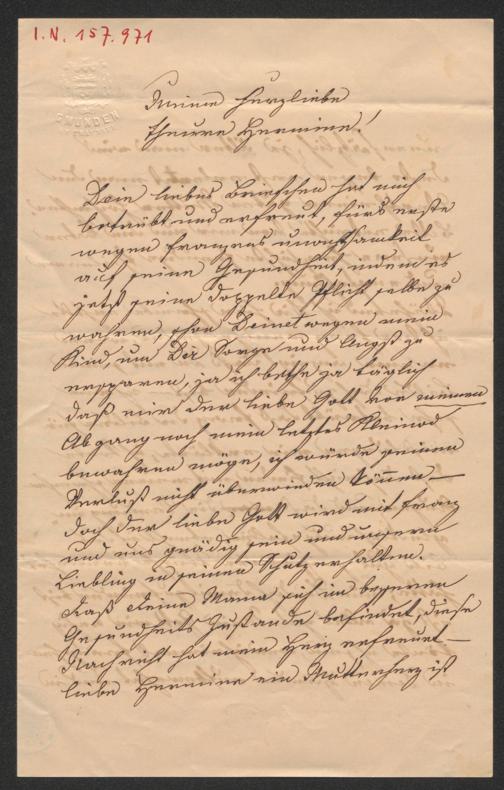 I.N. 157.971
GMUNDEN
Meine herzliebe
theure Hermine!
Dein liebes Briefchen hat mich
betrübt und erfreut, fürs erste
wegen Franzens unachtsamkeit
auf seine Gesundheit, indem es
jetzt seine doppelte Pflicht selbe zu
wahren, schon Deinetwegen mein
Kind, um Dir Sorge und Angst zu
ersparen, ja ich bethe ja täglich
daß mir der liebe Gott vor meinem
Abgang noch mein letztes Kleinod
bewahren möge, ich würde seinen
Verlust nicht überwinden können —
doch der liebe Gott wird mit Franz
und uns gnädig sein und unsern
Liebling in seinen Schutz erhalten.
Daß Deine Mama sich im besseren
Gesundheits Zustande befindet, diese
Nachricht hat mein Herz erfreuet —
liebe Hermine ein Mutterherz ist